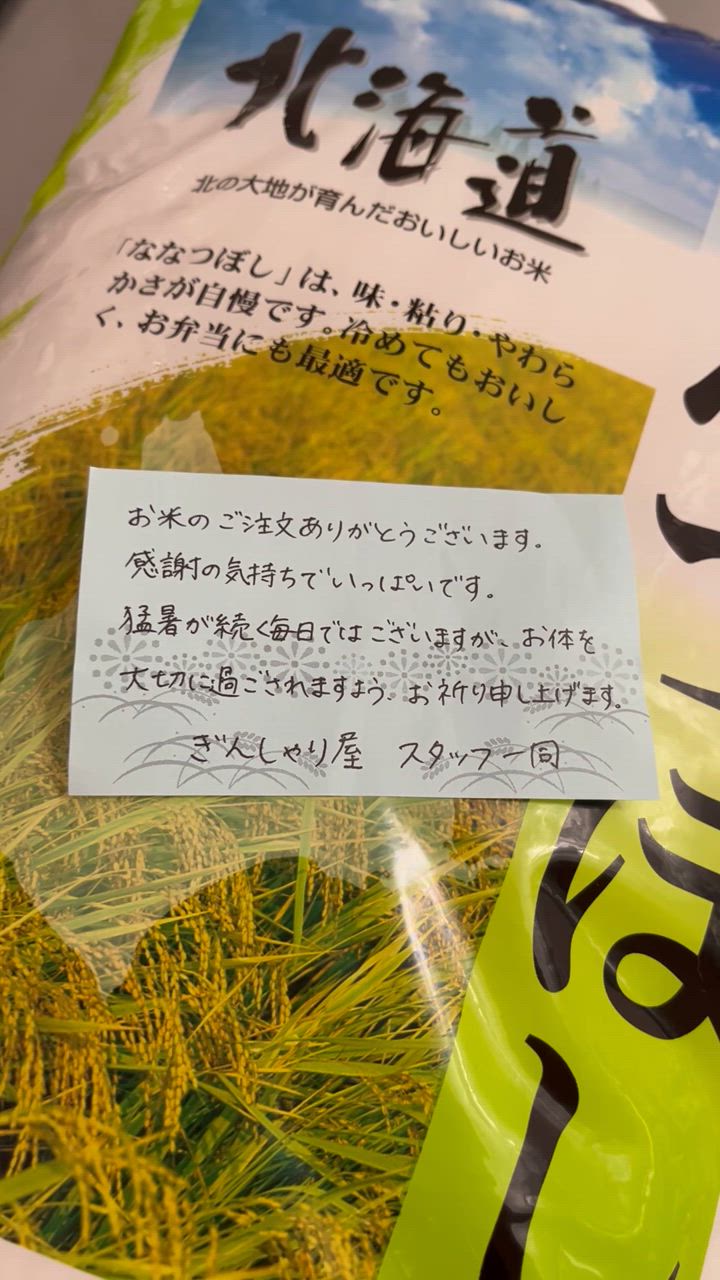 北海道
北の大地が育んだおいしいお米
「ななつぼし」は、味・粘り・やわら
かさが自慢です。冷めてもおいし
く、お弁当にも最適です。
お米のご注文ありがとうございます。
感謝の気持ちでいっぱいです。
猛暑が続く毎日ではございますが、お体を
大切に過ごされますよう、お祈り申し上げます。
ぎんしゃり屋 スタッフ一同
ぼし